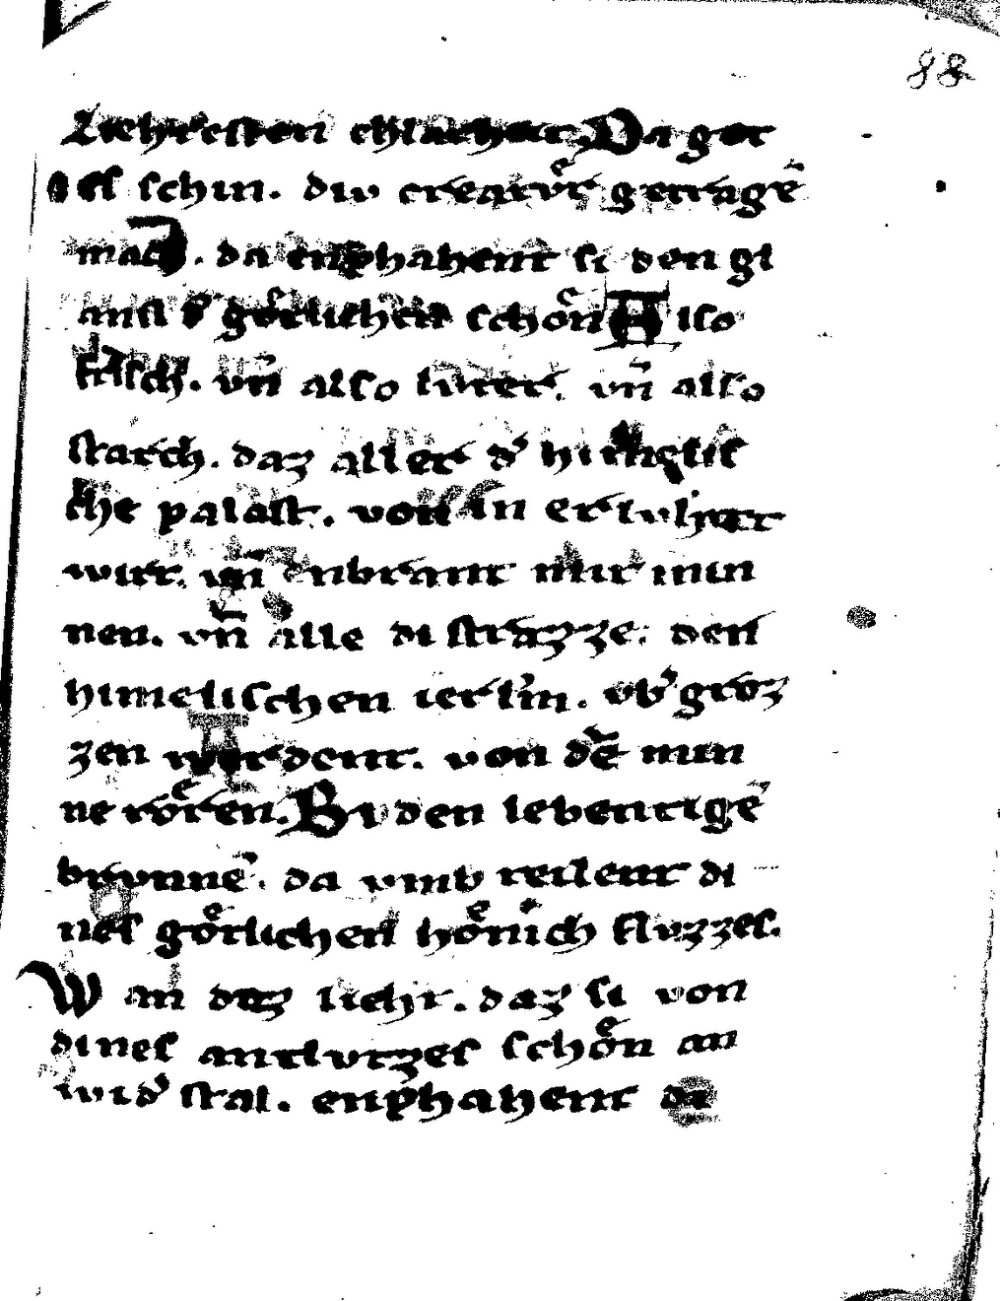 88
Liehtesten chlarheit. Da got
es schin. div creatuͦr getragē
mach. da enphahent si den gl
anst dˢ goͤtlichen schoͤn Also
frisch. vn̄ also luter. vn̄ also
starch. daz aller dˢ himelis
che palast. von in erluhtet
wirt. vn̄ enbrant mit min
nen. vn̄ alle di strazze. den
himelischen ierl'm. vbˢ groz
zen werdent. von dē min
ne roͤren. Bi den lebentigē
brvnnē. da vmb teilent di
nes goͤtlichen hoͤnich fluzzes.
Wan daz lieht. daz si von
dines antlutzes schoͤn an
widˢ stal. enphahent di